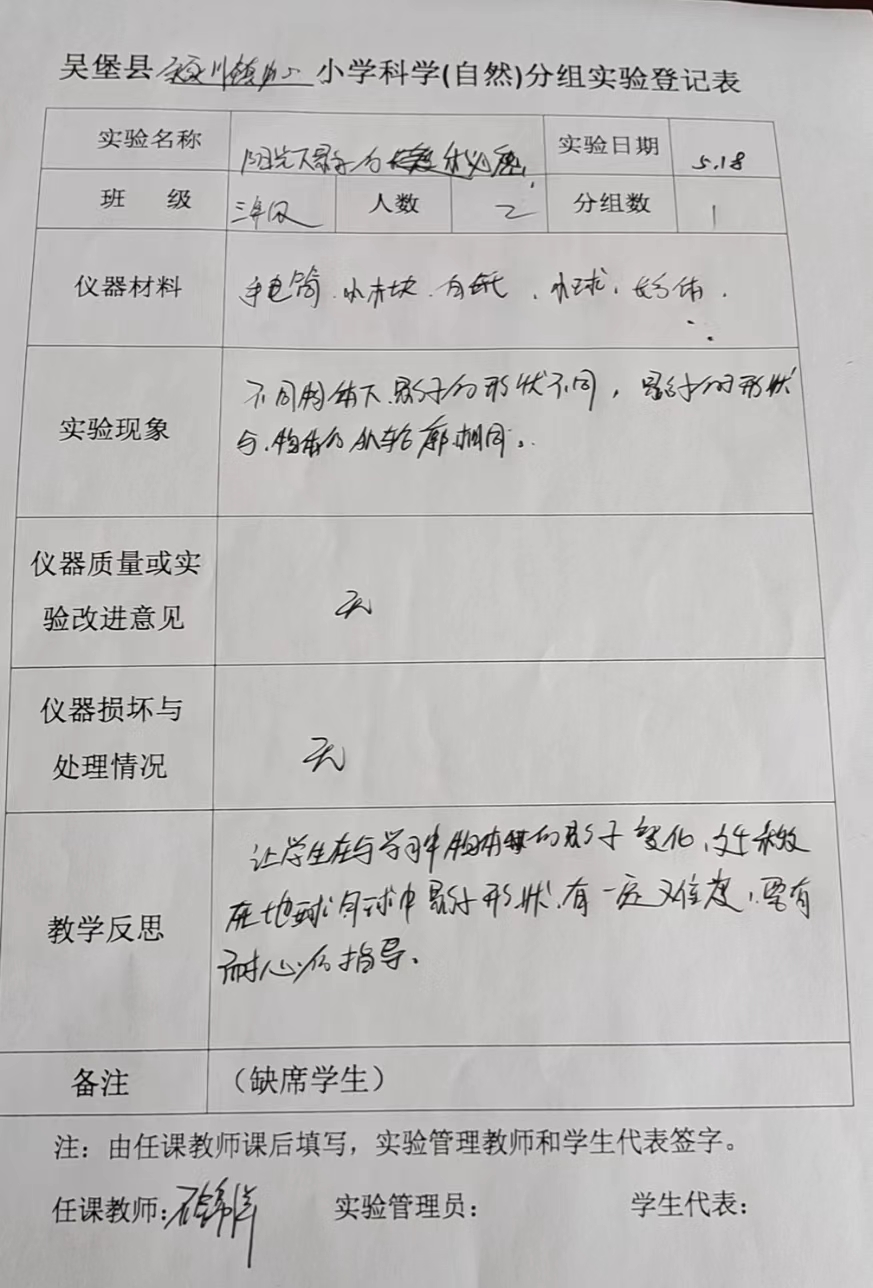 吴堡县 寇家川镇中心 小学科学(自然)分组实验登记表
实验名称 阳光下影子的 实验日期 5.18
班 级 三年级 人数 2 分组数 1
仪器材料 手电筒、小木块、白纸、小球、长方体.
实验现象 不同物体下影子的形状不同，影子的形状
与物体的外轮廓相同。
仪器质量或实
验改进意见 无
仪器损坏与
处理情况 无
教学反思 让学生在与学习中物体的影子变化,
在地球月球中影子形状,有一定难度,要有
耐心的指导。
备注 （缺席学生）
注：由任课教师课后填写，实验管理教师和学生代表签字。
任课教师: 实验管理员： 学生代表：